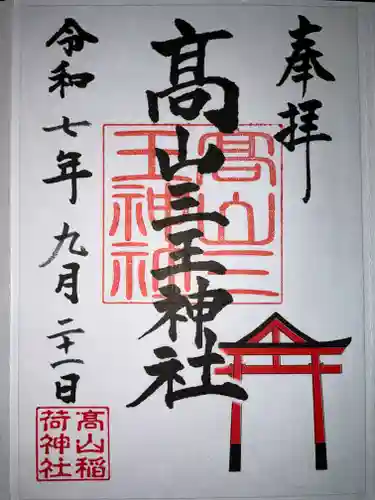 奉拝
髙山三王神社
令和七年九月二十一日
髙山三
王神社
髙山稲
荷神社